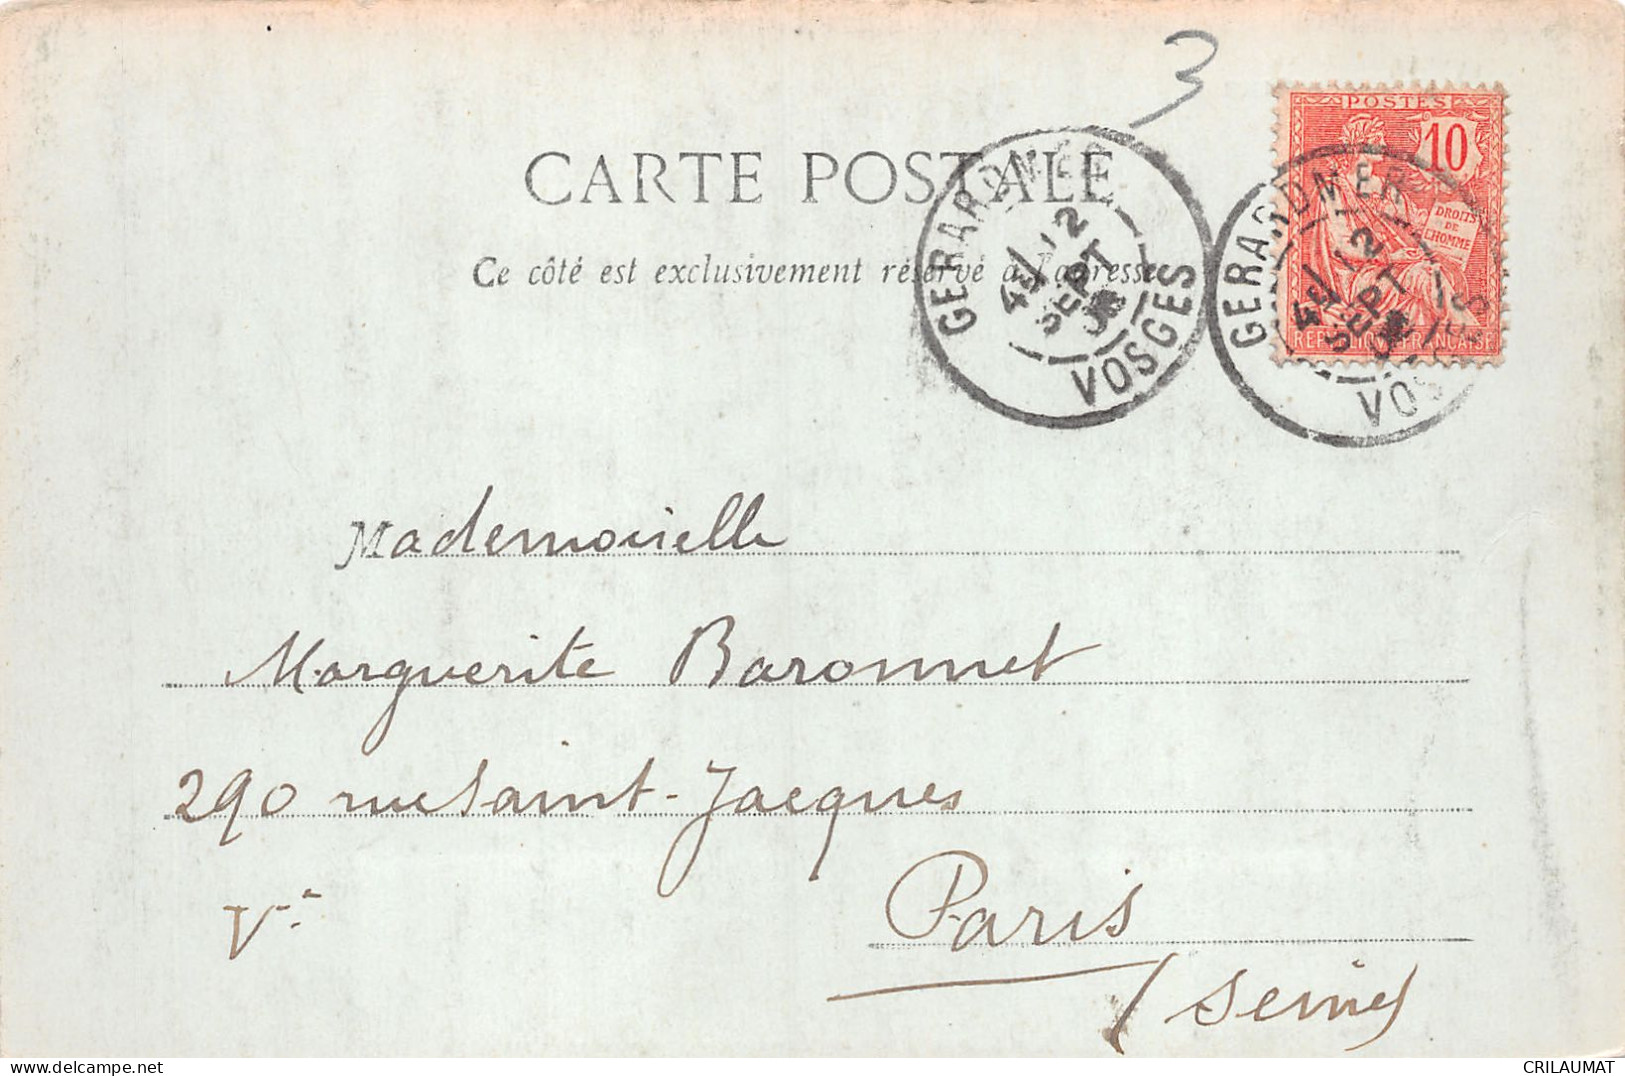 3
CARTE POSTALE
Ce côté est exclusivement réservé à l'adresse
GERARDMER
12
SEPT
VOSGES
POSTES
10
DROITS
DE
L'HOMME
REPUBLIQUE FRANCAISE
GERARDMER
12
SEPT
VOSGES
Mademoiselle
Marguerite Baronnet
290 rue Saint-Jacques
Ve
Paris
(Seine)
CRILAUMAT